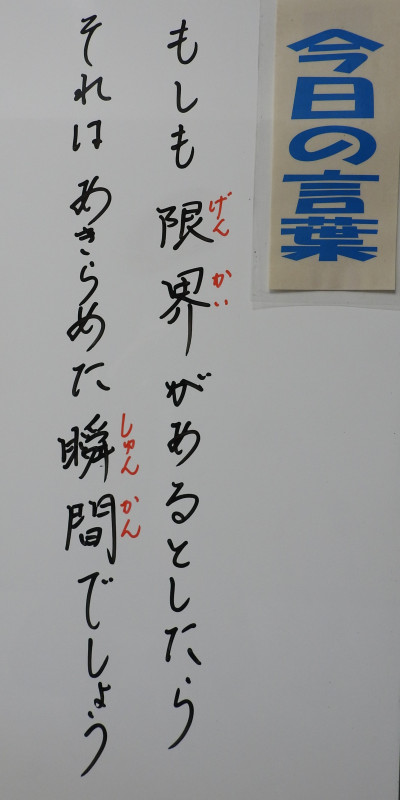 今日の言葉
もしも限界があるとしたら
げんかい
それはあきらめた瞬間でしょう
しゅんかん